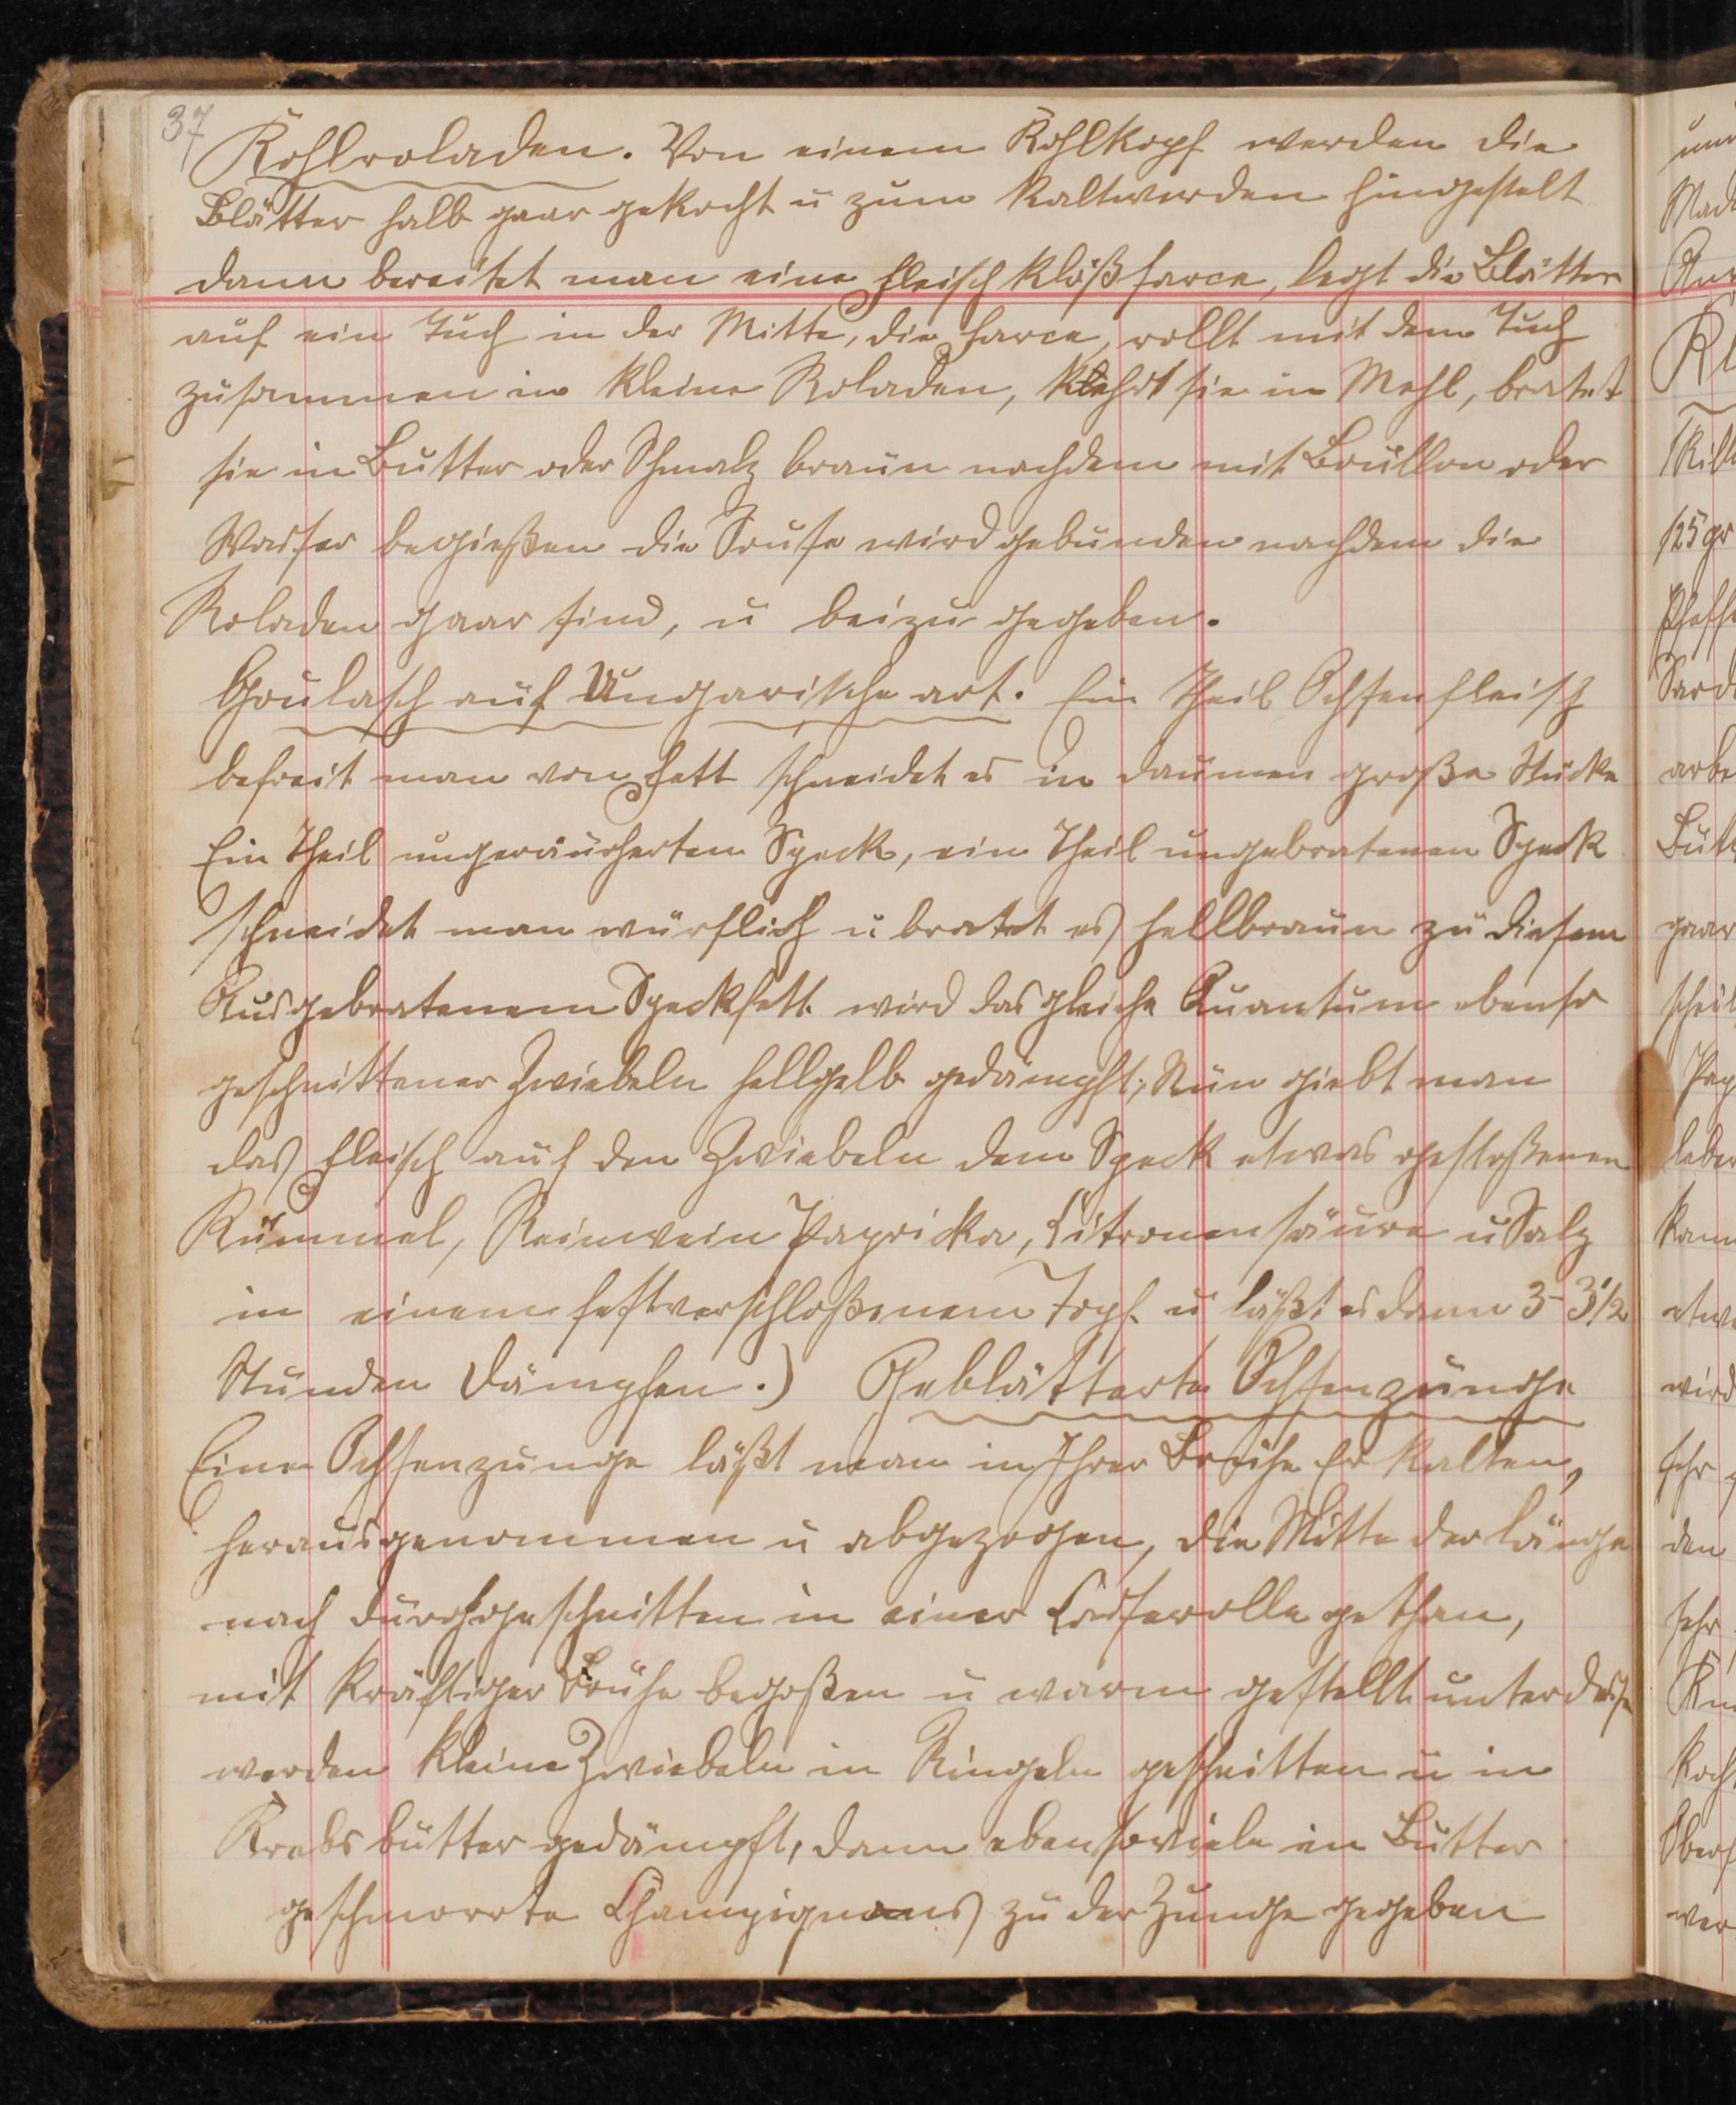 37
Kohlroladen. Von einem Kohlkopf werden die
Blätter halb gaar gekocht u zum kaltwerden hingestelt
dann bereitet man eine Fleischklößfarce, legt die Blätter
auf ein Tuch in der Mitte, die Farce, rollt mit dem Tuch
zusammen in kleine Roladen, kehrt sie in Mehl, bratet
sie in Butter oder Schmalz braun nachdem mit Boullon oder
Wasser begießen die Souse wird gebunden nachdem die
Roladen gaar sind, u beizu gegeben.
Goulasch auf Ungarische art. Ein Theil Ochsenfleisch
befreit man von Fett schneidet es in daumen große Stücke
Ein Theil ungeräucherten Speck, ein Theil ungebratenen Speck
schneidet man würflich u bratet es hellbraun zu diesem
Ausgebratenem Speckfett wird das gleiche Quantum ebenso
geschnittener Zwiebeln hellgelb gedämpft, Nun giebt man
das Fleisch auf den Zwiebeln dem Speck etwas gestoßenen
Kümmel, Reinwein Papricka, Citronensäure u Salz
in einem festverschloßenem Topf u läßt es dann 3-3 1/2
Stunden Dämpfen.) Geblätterte Ochsenzunge
Eine Ochsenzunge läßt man in Ihrer Brühe Erkalten,
herausgenommen u abgezogen, die Mitte der länge
nach durchgeschnitten in einer Casserolle gethan,
mit kräftiger Brühe begoßen u warm gestellt unterdeße
werden kleine Zwiebeln in Ringeln geschnitten u in
Krebsbutter gedämpft, dann ebensoviele in Butter
geschmorrte Champignons zu der Zunge gegeben